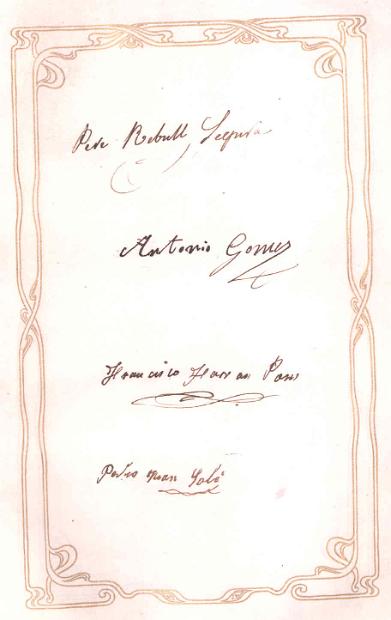 Pere Rebull Segura
Antonio Gomez
Francisco Pons
Pedro Juan Solé